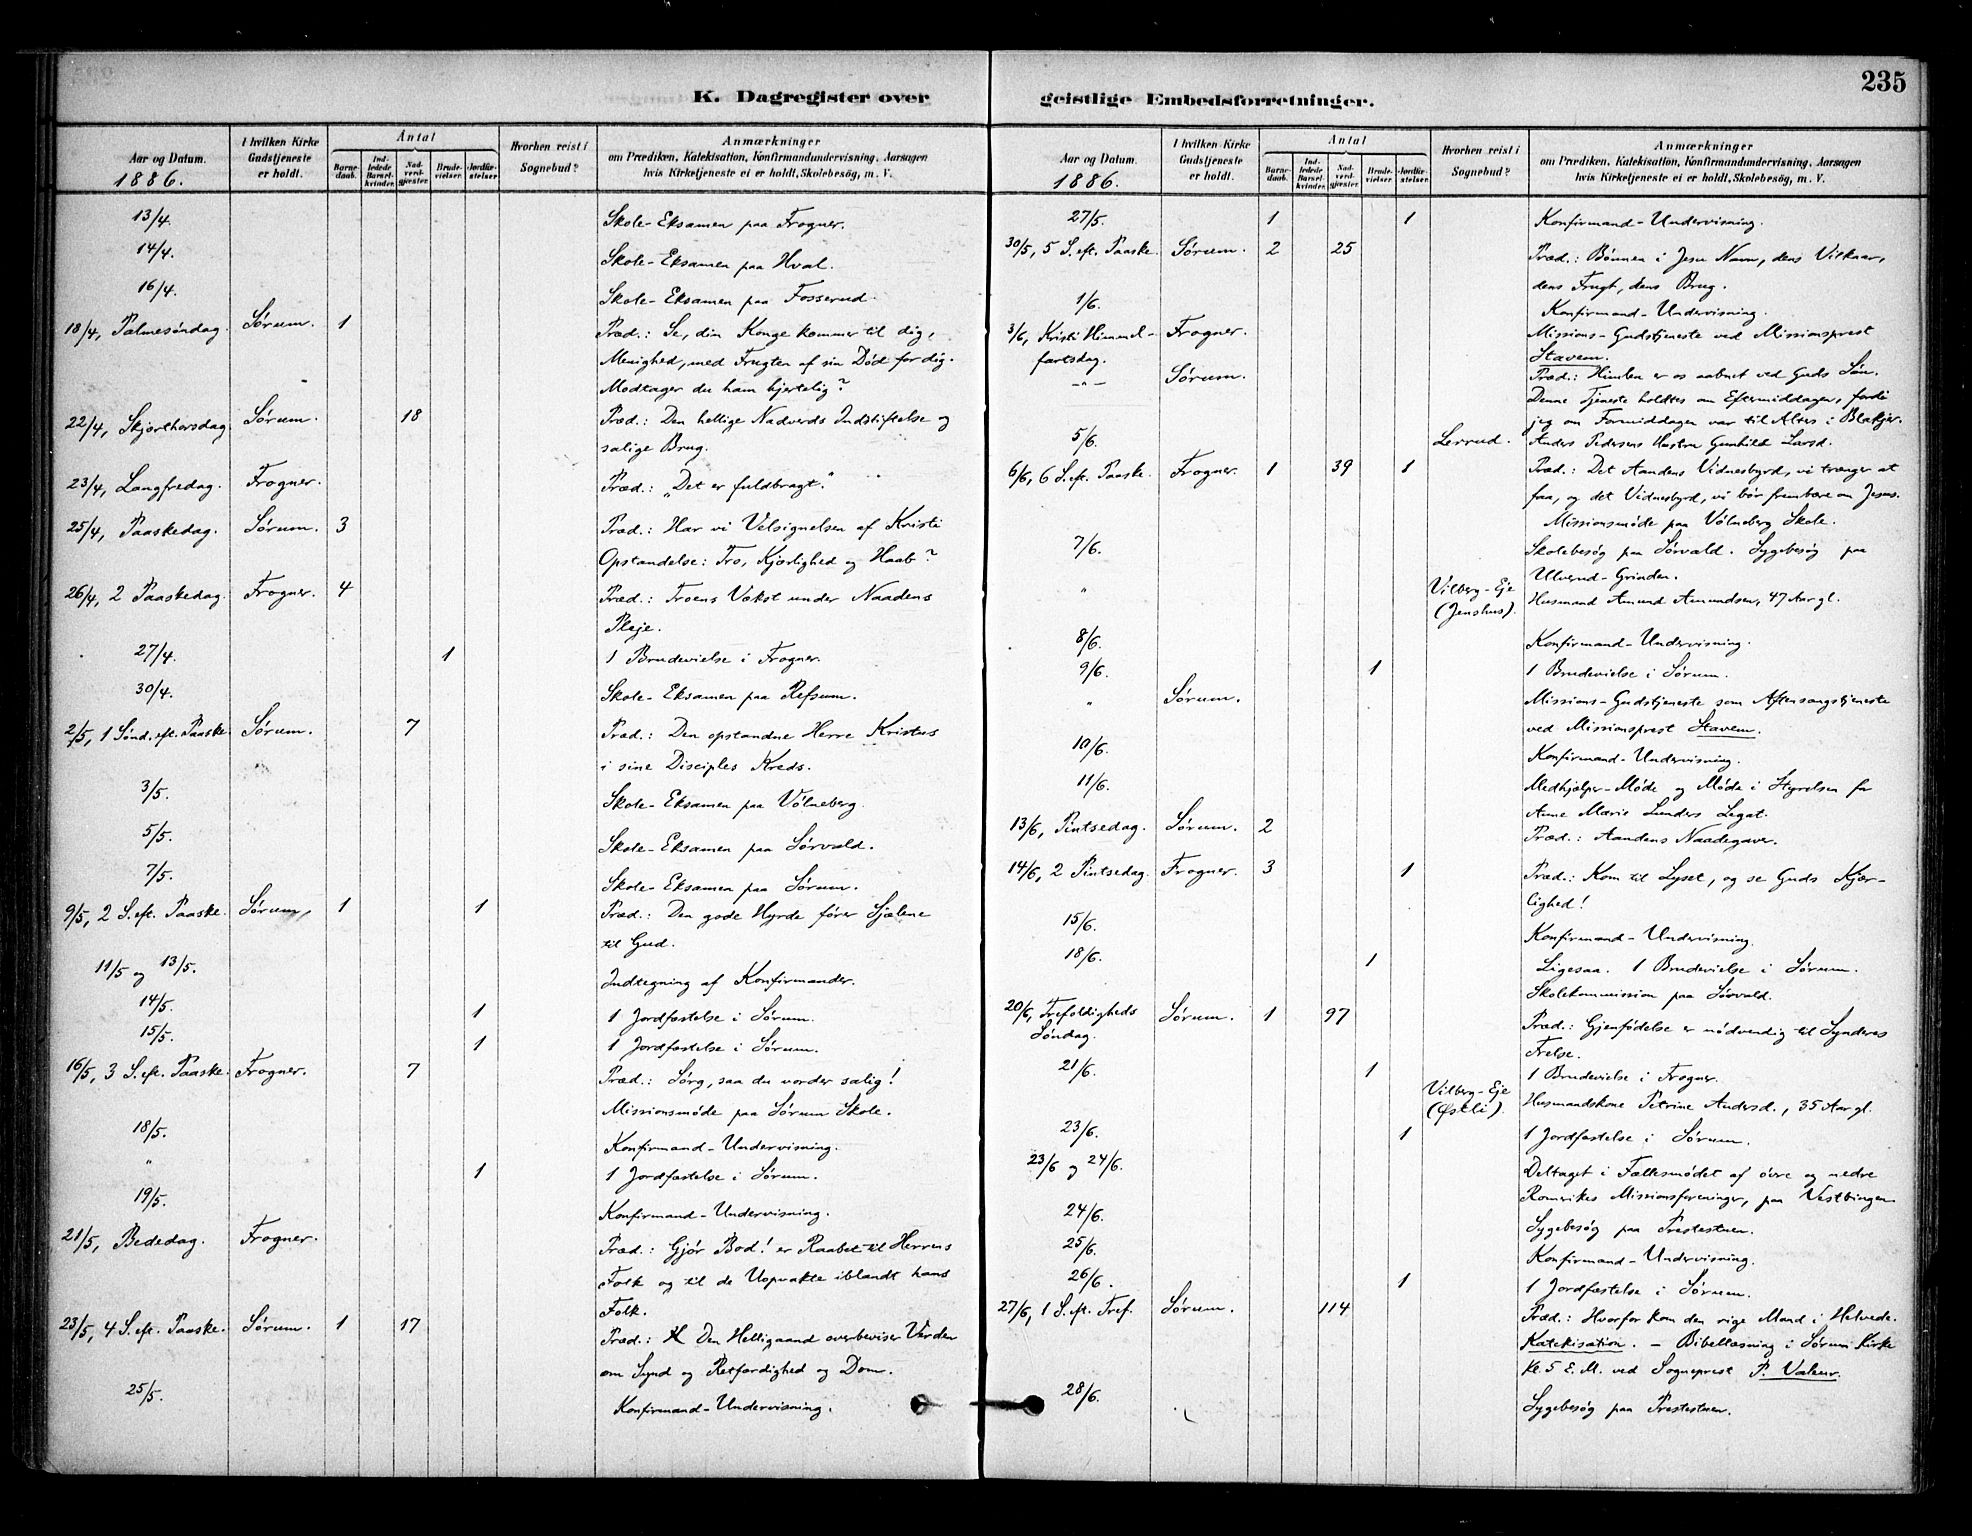 235
K. Dagregister over
geistlige Embedsforretninger.
Aar og Datum.
1886.
I hvilken Kirke Gudstjeneste er holdt.
Antal
Barnedaab.
Indledede Barselkvinder.
Nadverdgjæster.
Brudevielser.
Jordfæstelser.
Hvorhen reist i Sognebud?
Anmærkninger
om Prædiken, Katekisation, Konfirmandundervisning, Aarsagen
hvis Kirketjeneste ei er holdt, Skolebesøg, m. V.
13/4. Skole-Eksamen paa Frogner.
14/4. Skole-Eksamen paa Hval.
16/4. Skole-Eksamen paa Fosserud.
18/4, Palmesøndag. Sørum. 1 Præd.: Se, din Konge kommer til dig,
Menighed, med Frugten af sin Død for dig.
Modtager du ham hjertelig?
22/4, Skjærthorsdag Sørum. 18 Præd.: Den hellige Nadverds Indstiftelse og
salige Brug.
23/4, Langfredag. Frogner. Præd.: „Det er fuldbragt."
25/4, Paaskedag. Sørum. 3 Præd.: Har vi Velsignelsen af Kristi
Opstandelse: Tro, Kjærlighed og Haab?
26/4, 2 Paaskedag. Frogner. 4 Præd.: Troens Vækst under Naadens
Pleje.
27/4. 1 1 Brudevielse i Frogner.
30/4. Skole-Eksamen paa Refsum.
2/5, 1 Sønd. eft. Paaske Sørum. 7 Præd.: Den opstandne Herre Kristus
i sine Disciples Kreds.
3/5. Skole-Eksamen paa Vølneberg.
5/5. Skole-Eksamen paa Sørvald.
7/5. Skole-Eksamen paa Sørum.
9/5, 2 S. eft. Paaske. Sørum, 1 1 Præd.: Den gode Hyrde fører Sjælene
til Gud.
11/5 og 13/5. Indtegning af Konfirmander.
14/5. 1 1 Jordfæstelse i Sørum.
15/5. 1 1 Jordfæstelse i Sørum.
16/5, 3 S. eft. Paaske. Frogner. 7 Præd.: Sørg, saa du vorder salig!
Missionsmøde paa Sørum Skole.
18/5. Konfirmand-Undervisning.
" 1 1 Jordfæstelse i Sørum.
19/5. Konfirmand-Undervisning.
21/5, Bededag. Frogner. Præd.: Gjør Bod! er Raabet til Herrens
Folk og til de Uopvakte iblandt hans
Folk.
23/5, 4 S. eft. Paaske. Sørum. 1 17 Præd.: Den Helligaand overbeviser Verden
om Synd og Retfærdighed og Dom.
25/5. Konfirmand-Undervisning.
Aar og Datum.
1886.
I hvilken Kirke Gudstjeneste er holdt.
Antal
Barnedaab.
Indledede Barselkvinder.
Nadverdgjæster.
Brudevielser.
Jordfæstelser.
Hvorhen reist i Sognebud?
Anmærkninger
om Prædiken, Katekisation, Konfirmandundervisning, Aarsagen
hvis Kirketjeneste ei er holdt, Skolebesøg, m. V.
27/5. 1 1 Konfirmand-Undervisning.
30/5, 5 S. eft. Paaske Sørum. 2 25 Præd.: Bønnen i Jesu Navn, dens Vilkaar,
dens Frugt, dens Brug.
1/6. Konfirmand-Undervisning.
3/6, Kristi Himmel- Frogner. Missions-Gudstjeneste ved Missionsprest
fartsdag. Stavem.
— " — Sørum. Præd.: Himlen er os aabnet ved Guds Søn.
Denne Tjeneste holdtes om Eftermiddagen, fordi
jeg om Formiddagen var til Alters i Blakjer.
5/6. Lerrud. Anders Pedersens Hustru Gunhild Larsd.
6/6, 6 S. eft. Paaske. Frogner. 1 39 1 Præd.: Det Aandens Vidnesbyrd, vi trænger at
faa, og det Vidnesbyrd, vi bør frembære om Jesus.
Missionsmøde paa Vølneberg Skole.
7/6. Skolebesøg paa Sørvald. Sygebesøg paa
Ulverud-Grinden.
" Vilberg-Eje (Jenshus). Husmand Amund Amundsen, 47 Aar gl.
8/6. Konfirmand-Undervisning.
9/6. 1 1 Brudevielse i Sørum.
" Sørum. Missions-Gudstjeneste som Aftensangstjeneste
ved Missionsprest Stavem.
10/6. Konfirmand-Undervisning.
11/6. Medhjælper-Møde og Møde i Styrelsen for
Anne Marie Lunders Legat.
13/6, Pintsedag. Sørum. 2 Præd.: Aandens Naadegaver.
14/6, 2 Pintsedag. Frogner. 3 1 Præd.: Kom til Lyset, og se Guds Kjær-
lighed!
15/6. Konfirmand-Undervisning.
18/6. 1 Ligesaa. 1 Brudevielse i Sørum.
Skolekommission paa Sørvald.
20/6, Trefoldigheds Sørum. 1 97 Præd.: Gjenfødelse er nødvendig til Synderes
Søndag. Frelse.
21/6. 1 1 Brudevielse i Frogner.
Vilberg-Eje (Østli). Husmandskone Petrine Andersd., 35 Aar gl.
23/6. 1 1 Jordfæstelse i Sørum.
23/6 og 24/6. Deltaget i Fællesmødet af øvre og nedre
Romerikes Missionsforeninger, paa Vestbingen
24/6. Sygebesøg paa Prestestuen.
25/6. Konfirmand-Undervisning.
26/6. 1 1 Jordfæstelse i Sørum.
27/6, 1 S. eft. Tref. Sørum. 114 Præd.: Hvorfor kom den rige Mand i Helvede.
Katekisation. — Bibellæsning i Sørum Kirke
kl. 5 E. M. ved Sogneprest P. Valeur.
28/6. Sygebesøg paa Prestestuen.